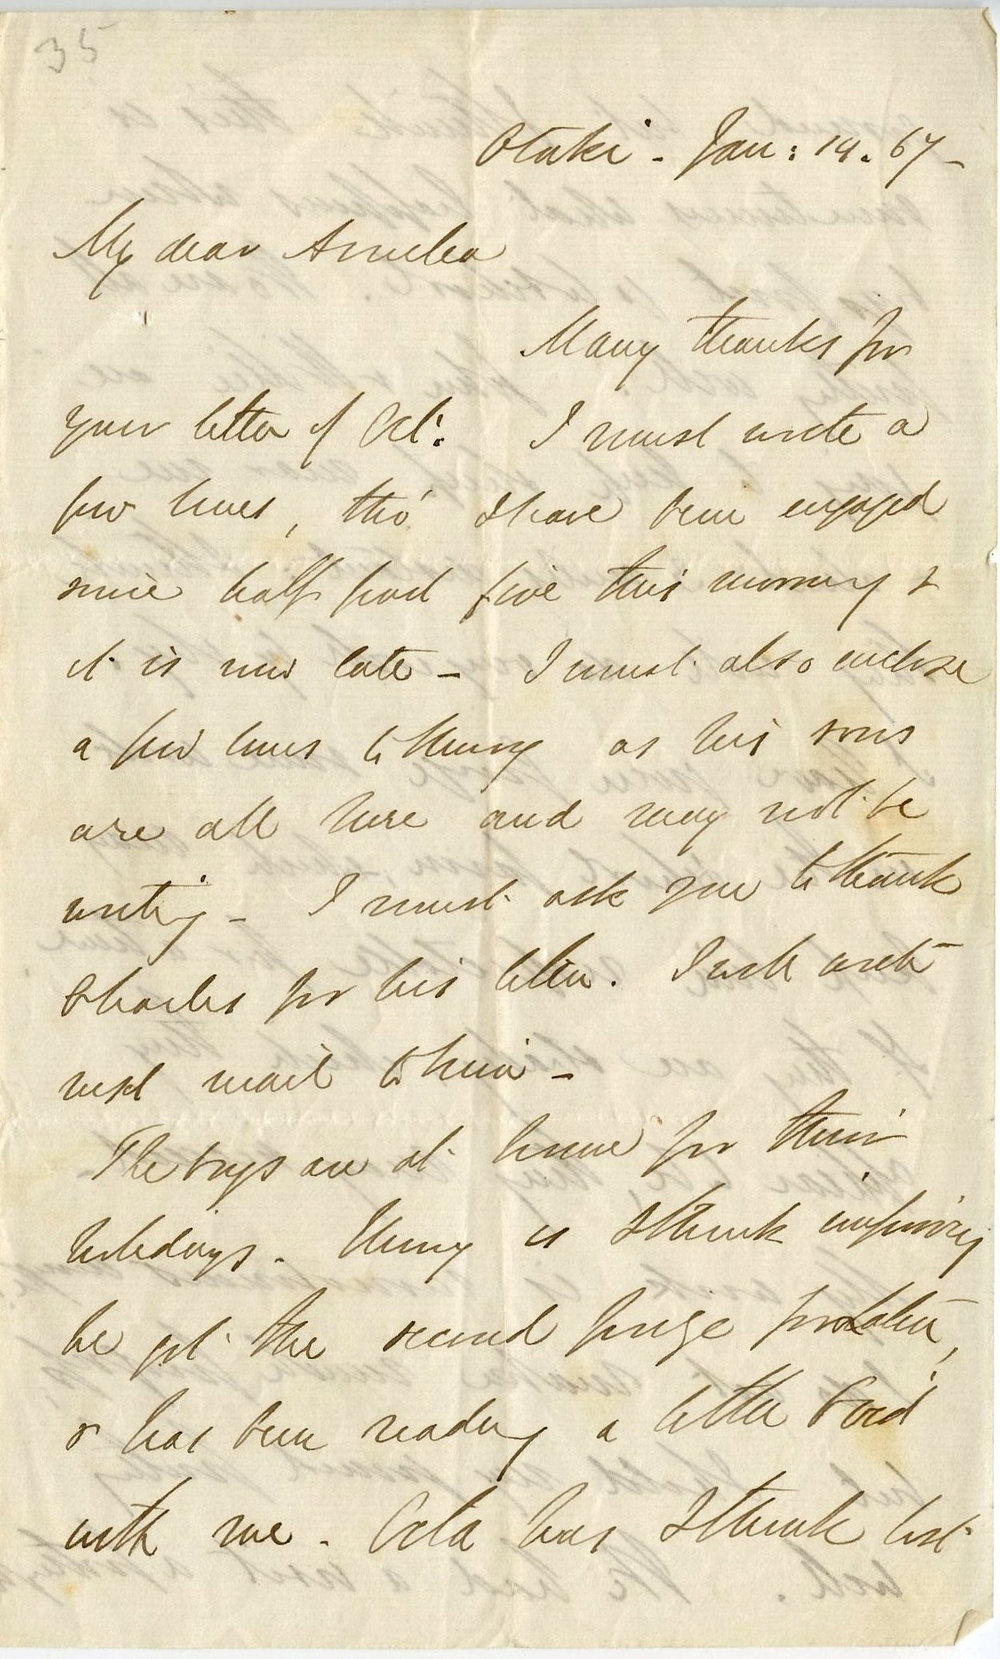 35
Otaki - Jan: 14. 67 -
My dear Amelia
Many thanks for
your letter of Oct:. I must write a
few lines, tho' I have been engaged
since half past five this morning &
it is now late - I must also enclose
a few lines to Henry as his sons
are all here and may not be
writing - I must ask you to thank
Charles for his letter. I will write
next mail to him -
The boys are at home for their
holidays. Henry is I think improving
he got the second prize for Latin,
& has been reading a little Ovid
with me. Octa has I think lost